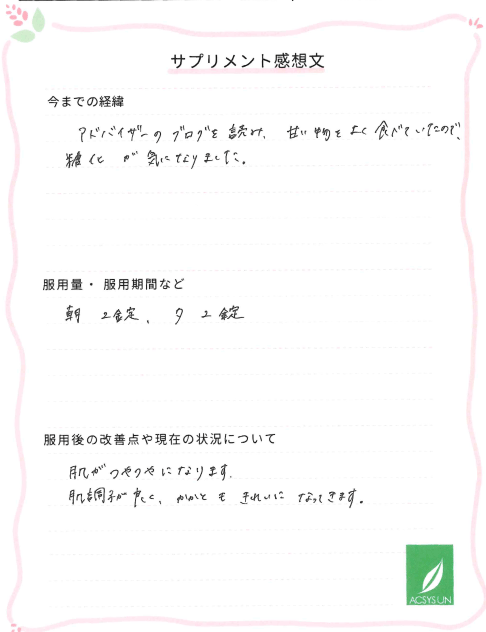 サプリメント感想文
今までの経緯
アドバイザーのブログを読み、甘い物をよく食べていたので、
糖化が気になりました。
服用量・服用期間など
朝 2錠、夕 2錠
服用後の改善点や現在の状況について
肌がつやつやになります。
肌調子が良く、かかともきれいになってきます。
ACSYSUN